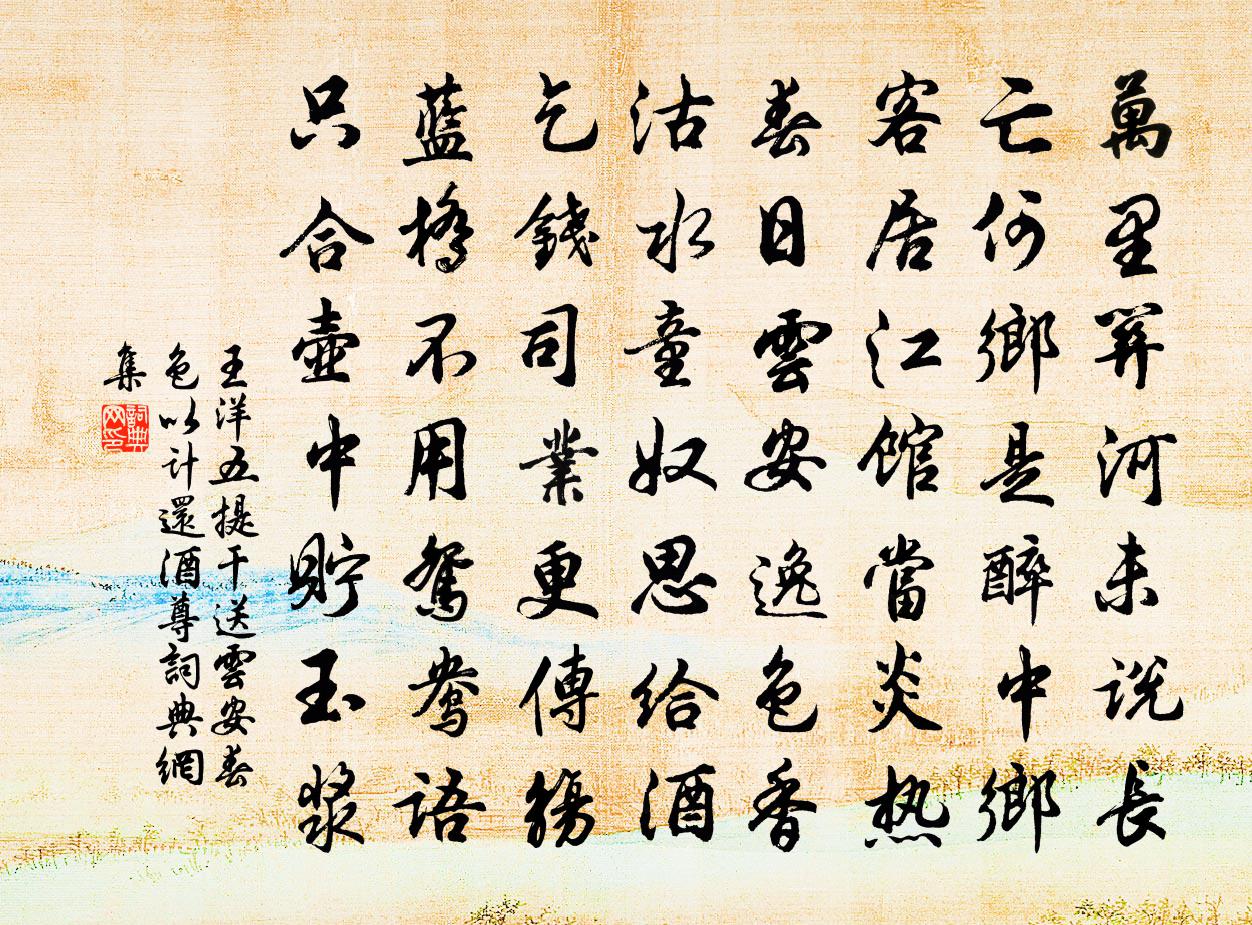 萬里關河未説長
亡何鄉是醉中鄉
客居江館當炎热
春日雲安逸色香
沽水童奴思给酒
乞錢司業更傳觴
藍橋不用鴛鴦语
只合壺中貯玉漿
王洋五提干送雲安春
色以计還酒尊詞典網
集
詞典
网印